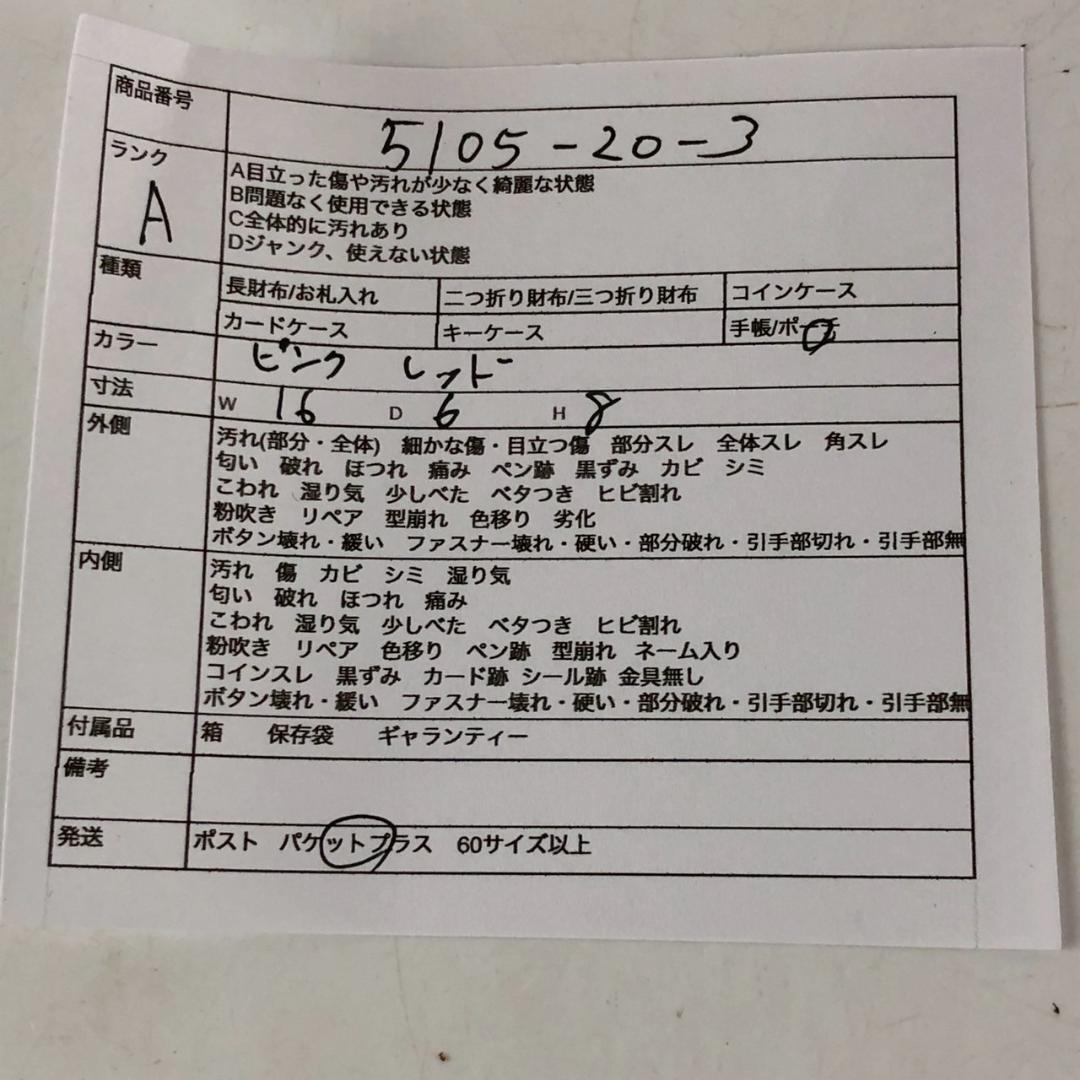 商品番号 5105-20-3
ランク A
A目立った傷や汚れが少なく綺麗な状態
B問題なく使用できる状態
C全体的に汚れあり
Dジャンク、使えない状態
種類 長財布/お札入れ 二つ折り財布/三つ折り財布 コインケース
カードケース キーケース 手帳/ポーチ
カラー ピンク レッド
寸法 W 16 D 6 H 8
外側 汚れ(部分・全体) 細かな傷・目立つ傷 部分スレ 全体スレ 角スレ
匂い 破れ ほつれ 痛み ペン跡 黒ずみ カビ シミ
こわれ 湿り気 少しべた ベタつき ヒビ割れ
粉吹き リペア 型崩れ 色移り 劣化
ボタン壊れ・緩い ファスナー壊れ・硬い・部分破れ・引手部切れ・引手部無
内側 汚れ 傷 カビ シミ 湿り気
匂い 破れ ほつれ 痛み
こわれ 湿り気 少しべた ベタつき ヒビ割れ
粉吹き リペア 色移り ペン跡 型崩れ ネーム入り
コインスレ 黒ずみ カード跡 シール跡 金具無し
ボタン壊れ・緩い ファスナー壊れ・硬い・部分破れ・引手部切れ・引手部無
付属品 箱 保存袋 ギャランティー
備考
発送 ポスト パケットプラス 60サイズ以上